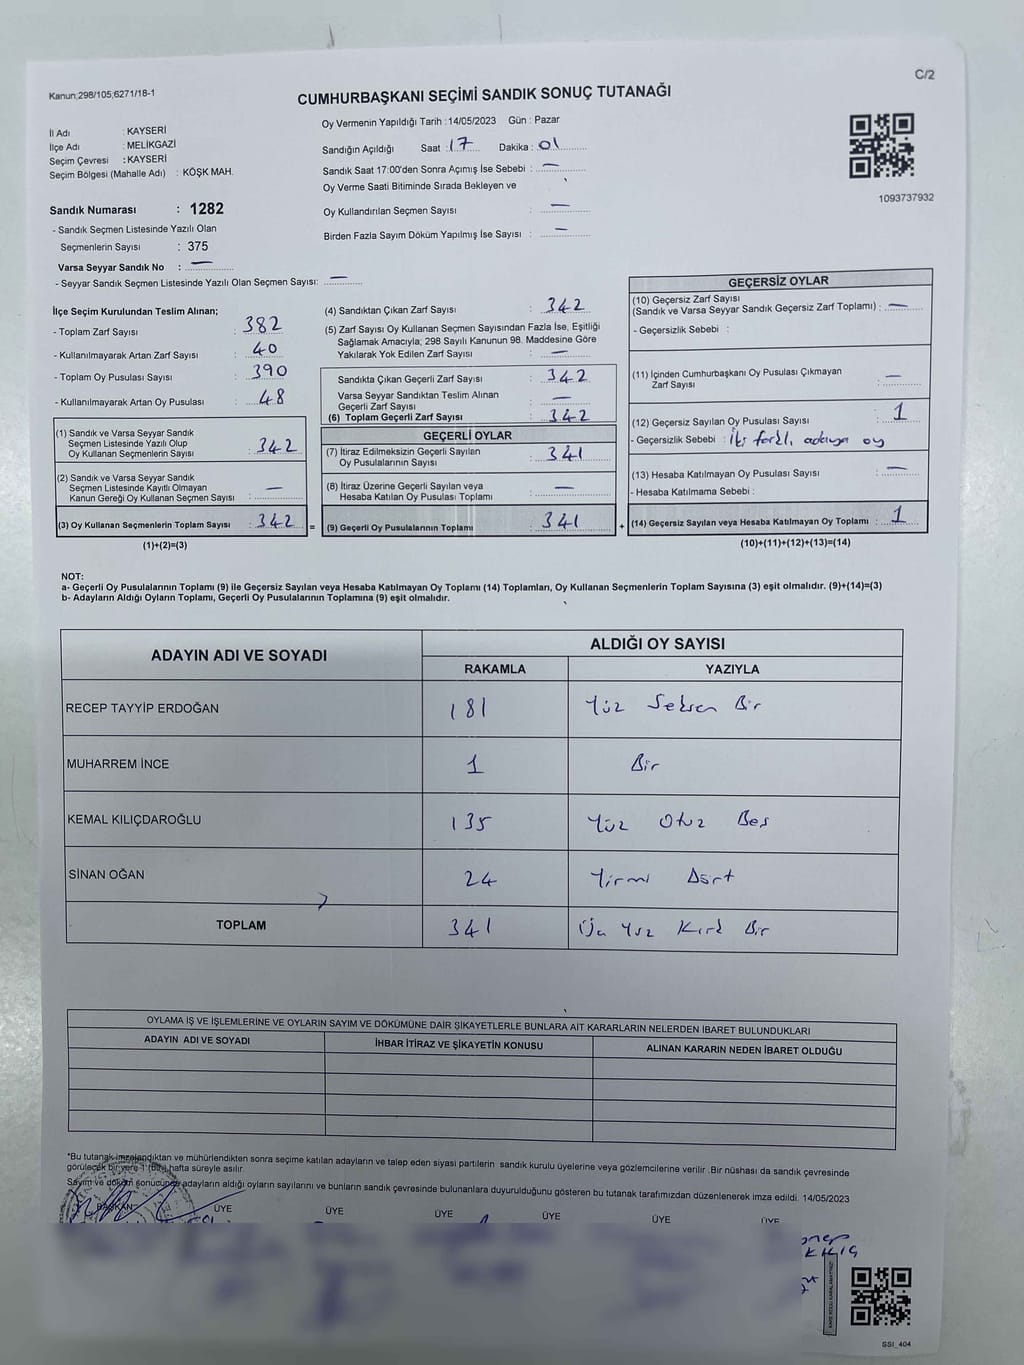 C/2
Kanun;298/105;6271/18-1
CUMHURBAŞKANI SEÇİMİ SANDIK SONUÇ TUTANAĞI
Oy Vermenin Yapıldığı Tarih : 14/05/2023 Gün : Pazar
İl Adı : KAYSERİ
İlçe Adı : MELİKGAZİ
Seçim Çevresi : KAYSERİ
Seçim Bölgesi (Mahalle Adı) : KÖŞK MAH.
Sandığın Açıldığı Saat : 17 Dakika : 01
Sandık Saat 17:00'den Sonra Açımış İse Sebebi : —
Oy Verme Saati Bitiminde Sırada Bekleyen ve
Oy Kullandırılan Seçmen Sayısı : —
Birden Fazla Sayım Döküm Yapılmış İse Sayısı : —
1093737932
Sandık Numarası : 1282
- Sandık Seçmen Listesinde Yazılı Olan
Seçmenlerin Sayısı : 375
Varsa Seyyar Sandık No : —
- Seyyar Sandık Seçmen Listesinde Yazılı Olan Seçmen Sayısı: —
İlçe Seçim Kurulundan Teslim Alınan;
- Toplam Zarf Sayısı : 382
- Kullanılmayarak Artan Zarf Sayısı : 40
- Toplam Oy Pusulası Sayısı : 390
- Kullanılmayarak Artan Oy Pusulası : 48
(1) Sandık ve Varsa Seyyar Sandık
Seçmen Listesinde Yazılı Olup
Oy Kullanan Seçmenlerin Sayısı : 342
(2) Sandık ve Varsa Seyyar Sandık
Seçmen Listesinde Kayıtlı Olmayan
Kanun Gereği Oy Kullanan Seçmen Sayısı : —
(3) Oy Kullanan Seçmenlerin Toplam Sayısı : 342
(1)+(2)=(3)
(4) Sandıktan Çıkan Zarf Sayısı : 342
(5) Zarf Sayısı Oy Kullanan Seçmen Sayısından Fazla İse, Eşitliği
Sağlamak Amacıyla; 298 Sayılı Kanunun 98. Maddesine Göre
Yakılarak Yok Edilen Zarf Sayısı : —
Sandıkta Çıkan Geçerli Zarf Sayısı : 342
Varsa Seyyar Sandıktan Teslim Alınan
Geçerli Zarf Sayısı : —
(6) Toplam Geçerli Zarf Sayısı : 342
GEÇERLİ OYLAR
(7) İtiraz Edilmeksizin Geçerli Sayılan
Oy Pusulalarının Sayısı : 341
(8) İtiraz Üzerine Geçerli Sayılan veya
Hesaba Katılan Oy Pusulası Toplamı : —
= (9) Geçerli Oy Pusulalarının Toplamı : 341 +
GEÇERSİZ OYLAR
(10) Geçersiz Zarf Sayısı
(Sandık ve Varsa Seyyar Sandık Geçersiz Zarf Toplamı) : —
- Geçersizlik Sebebi :
(11) İçinden Cumhurbaşkanı Oy Pusulası Çıkmayan
Zarf Sayısı : —
(12) Geçersiz Sayılan Oy Pusulası Sayısı : 1
- Geçersizlik Sebebi : İki farklı adaya oy
(13) Hesaba Katılmayan Oy Pusulası Sayısı : —
- Hesaba Katılmama Sebebi :
(14) Geçersiz Sayılan veya Hesaba Katılmayan Oy Toplamı : 1
(10)+(11)+(12)+(13)=(14)
NOT:
a- Geçerli Oy Pusulalarının Toplamı (9) ile Geçersiz Sayılan veya Hesaba Katılmayan Oy Toplamı (14) Toplamları, Oy Kullanan Seçmenlerin Toplam Sayısına (3) eşit olmalıdır. (9)+(14)=(3)
b- Adayların Aldığı Oyların Toplamı, Geçerli Oy Pusulalarının Toplamına (9) eşit olmalıdır.
ADAYIN ADI VE SOYADI
ALDIĞI OY SAYISI
RAKAMLA YAZIYLA
RECEP TAYYİP ERDOĞAN 181 Yüz Seksen Bir
MUHARREM İNCE 1 Bir
KEMAL KILIÇDAROĞLU 135 Yüz Otuz Beş
SİNAN OĞAN 24 Yirmi Dört
TOPLAM 341 Üç Yüz Kırk Bir
OYLAMA İŞ VE İŞLEMLERİNE VE OYLARIN SAYIM VE DÖKÜMÜNE DAİR ŞİKAYETLERLE BUNLARA AİT KARARLARIN NELERDEN İBARET BULUNDUKLARI
ADAYIN ADI VE SOYADI İHBAR İTİRAZ VE ŞİKAYETİN KONUSU ALINAN KARARIN NEDEN İBARET OLDUĞU
*Bu tutanak imzalandıktan ve mühürlendikten sonra seçime katılan adayların ve talep eden siyasi partilerin sandık kurulu üyelerine veya gözlemcilerine verilir .Bir nüshası da sandık çevresinde
görülecek bir yere 1 (Bir) hafta süreyle asılır.
Sayım ve döküm sonucunda adayların aldığı oyların sayılarını ve bunların sandık çevresinde bulunanlara duyurulduğunu gösteren bu tutanak tarafımızdan düzenlenerek imza edildi. 14/05/2023
BAŞKAN ÜYE ÜYE ÜYE ÜYE ÜYE ÜYE
KILIÇ
SSI_404